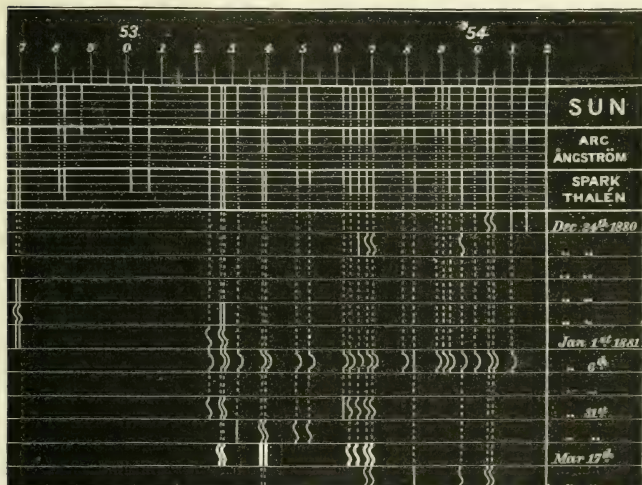 53 54
7 8 9 0 1 2 3 4 5 6 7 8 9 0 1 2
SUN
ARC
ÅNGSTRÖM
SPARK
THALÉN
Dec. 24th 1880
" "
" "
" "
" "
Jan 1st 1881
" 6th
" "
" 31st
" "
Mar 17th